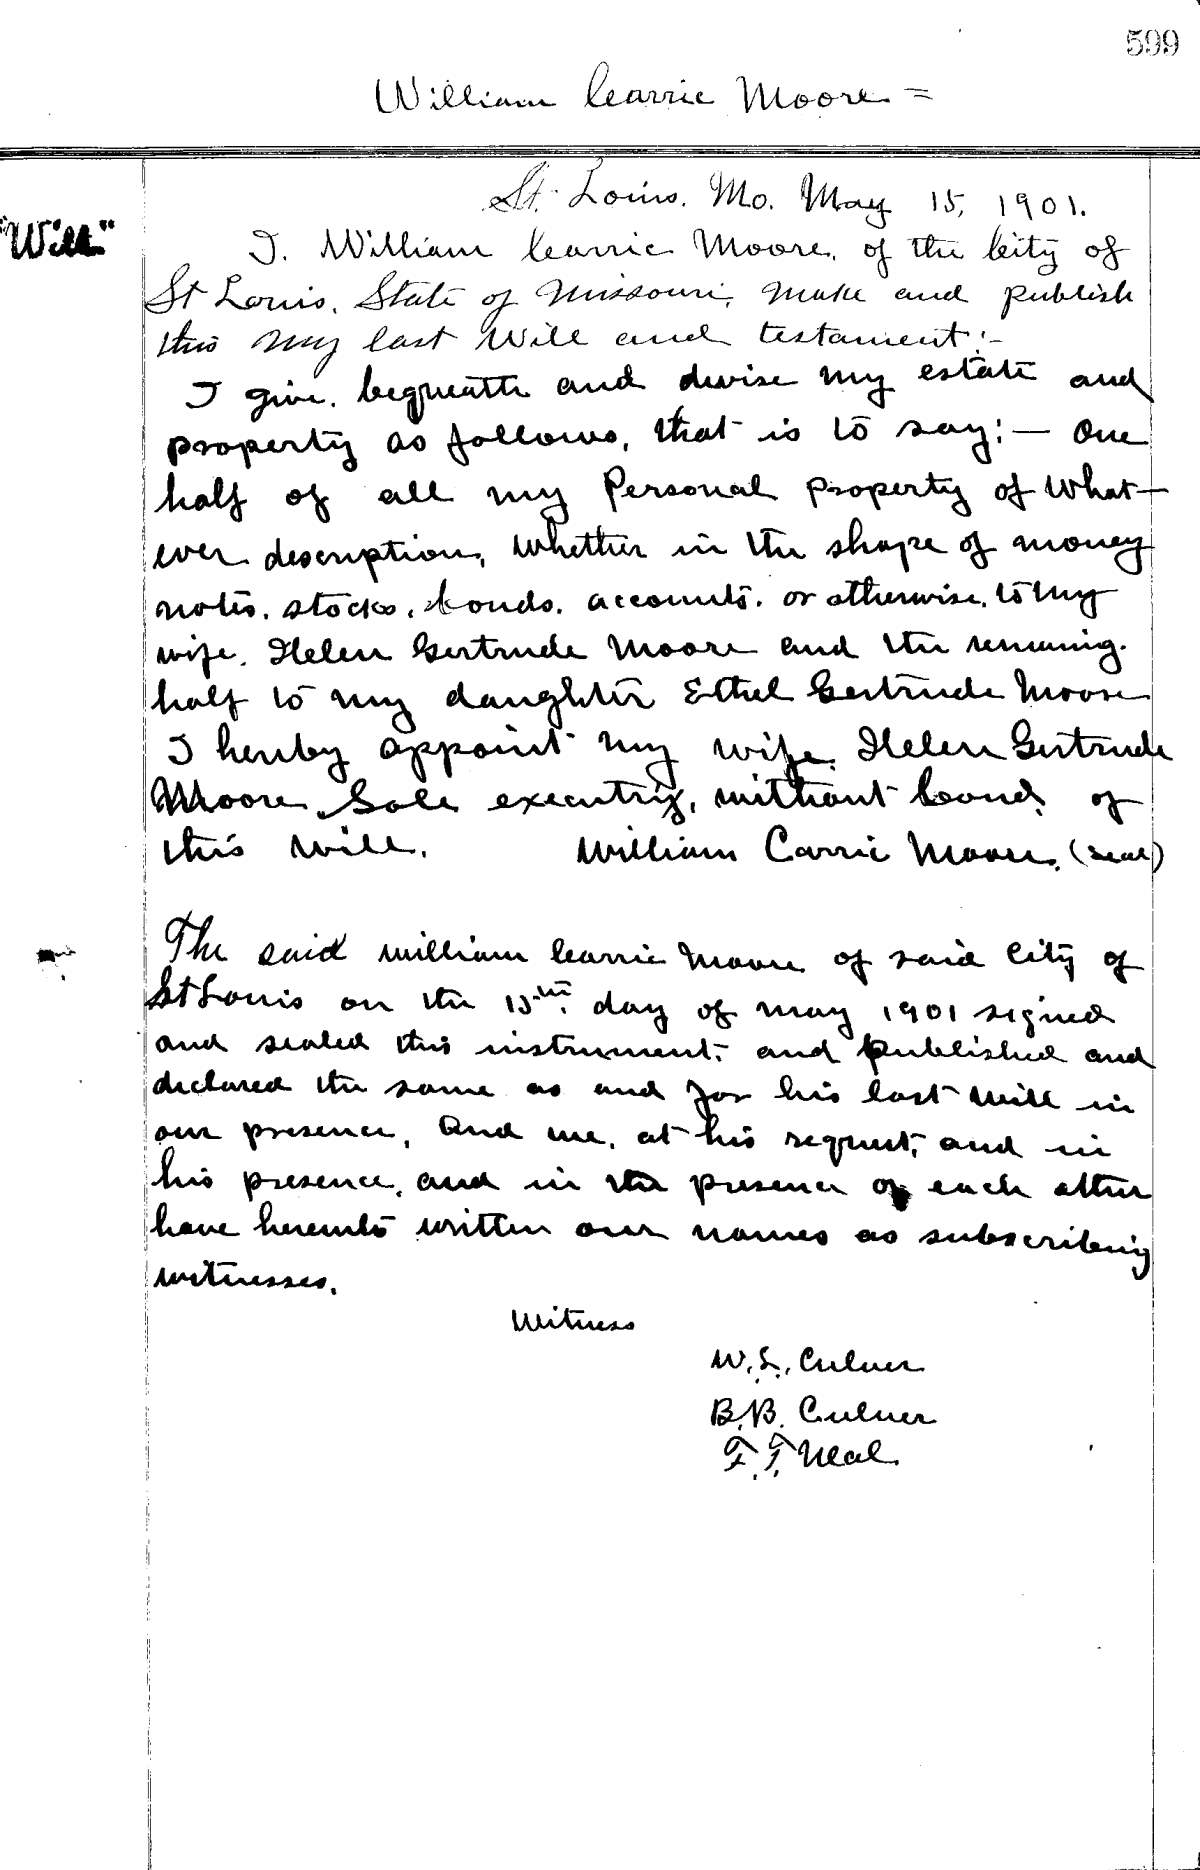 599
William Carrie Moore =
St. Louis. Mo. May 15, 1901.
"Will"
I. William Carrie Moore, of the City of
St Louis. State of Missouri, make and publish
this my last Will and testament:-
I give, bequeath and devise my estate and
property as follows, that is to say: — One
half of all my Personal property of What-
ever description, whether in the shape of money
notes, stocks, bonds, accounts, or otherwise, to my
wife, Helen Gertrude Moore and the remaing.
half to my daughter Ethel Gertrude Moore
I hereby appoint my wife, Helen Gertrude
Moore Sole executrix, without bond, of
this will. William Carrie Moore. (seal)
The said William Carrie Moore of said City of
St Louis on the 15th. day of May 1901 signed
and sealed this instrument, and published and
declared the same as and for his last Will in
our presence, And we, at his request, and in
his presence, and in the presence of each other
have hereunto written our names as subscribing
witnesses.
Witness
W. L. Culver
B. B. Culver
F. F. Neal.